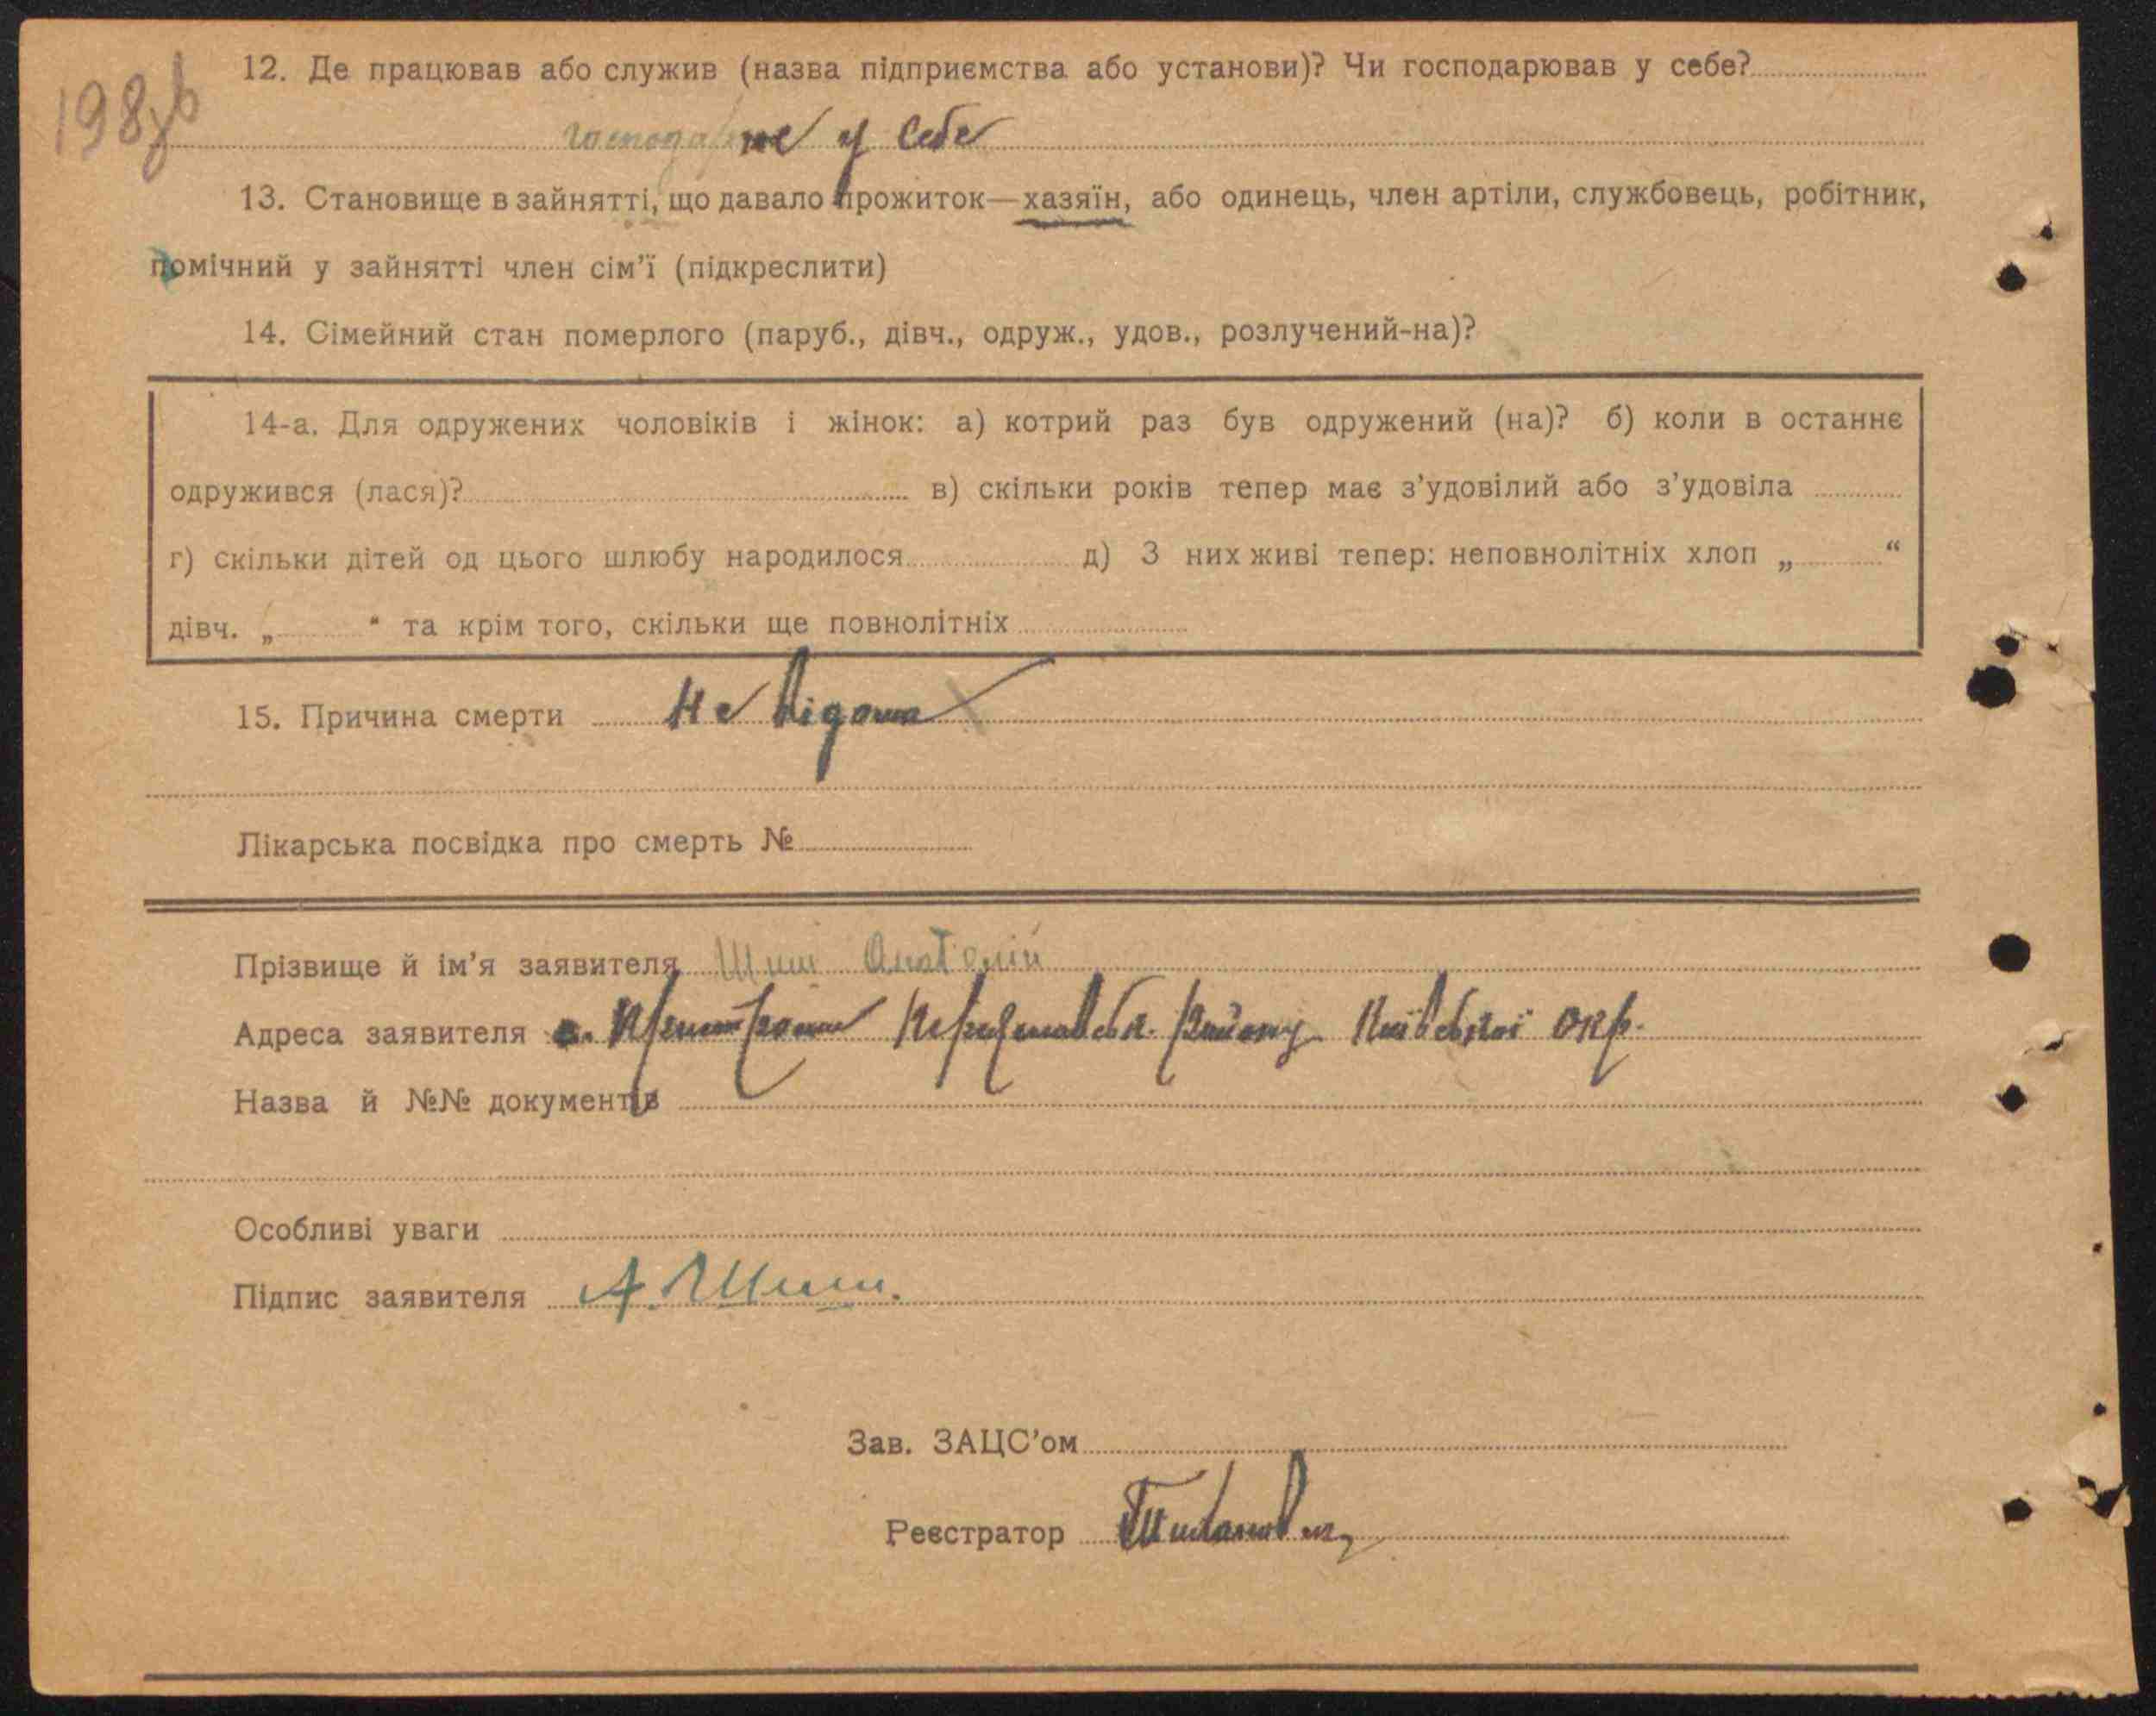 198
12. Де працював або служив (назва підприємства або установи)? Чи господарював у себе?
у себе
13. Становище в зайнятті, що давало прожиток—хазяїн, або одинець, член артіли, службовець, робітник,
помічний у зайнятті член сім’ї (підкреслити)
14. Сімейний стан померлого (паруб., дівч., одруж., удов., розлучений-на)?
14-а. Для одружених чоловіків і жінок: а) котрий раз був одружений (на)? б) коли в останнє
одружився (лася)? в) скільки років тепер має з’удовілий або з’удовіла
г) скільки дітей од цього шлюбу народилося д) З них живі тепер: неповнолітніх хлоп „ “
дівч. „ “ та крім того, скільки ще повнолітніх
15. Причина смерти Не відома
Лікарська посвідка про смерть №
Прізвище й ім’я заявителя Анатолій
Адреса заявителя с. району Київської окр.
Назва й №№ документів
Особливі уваги
Підпис заявителя А.
Зав. ЗАЦС’ом
Реєстратор